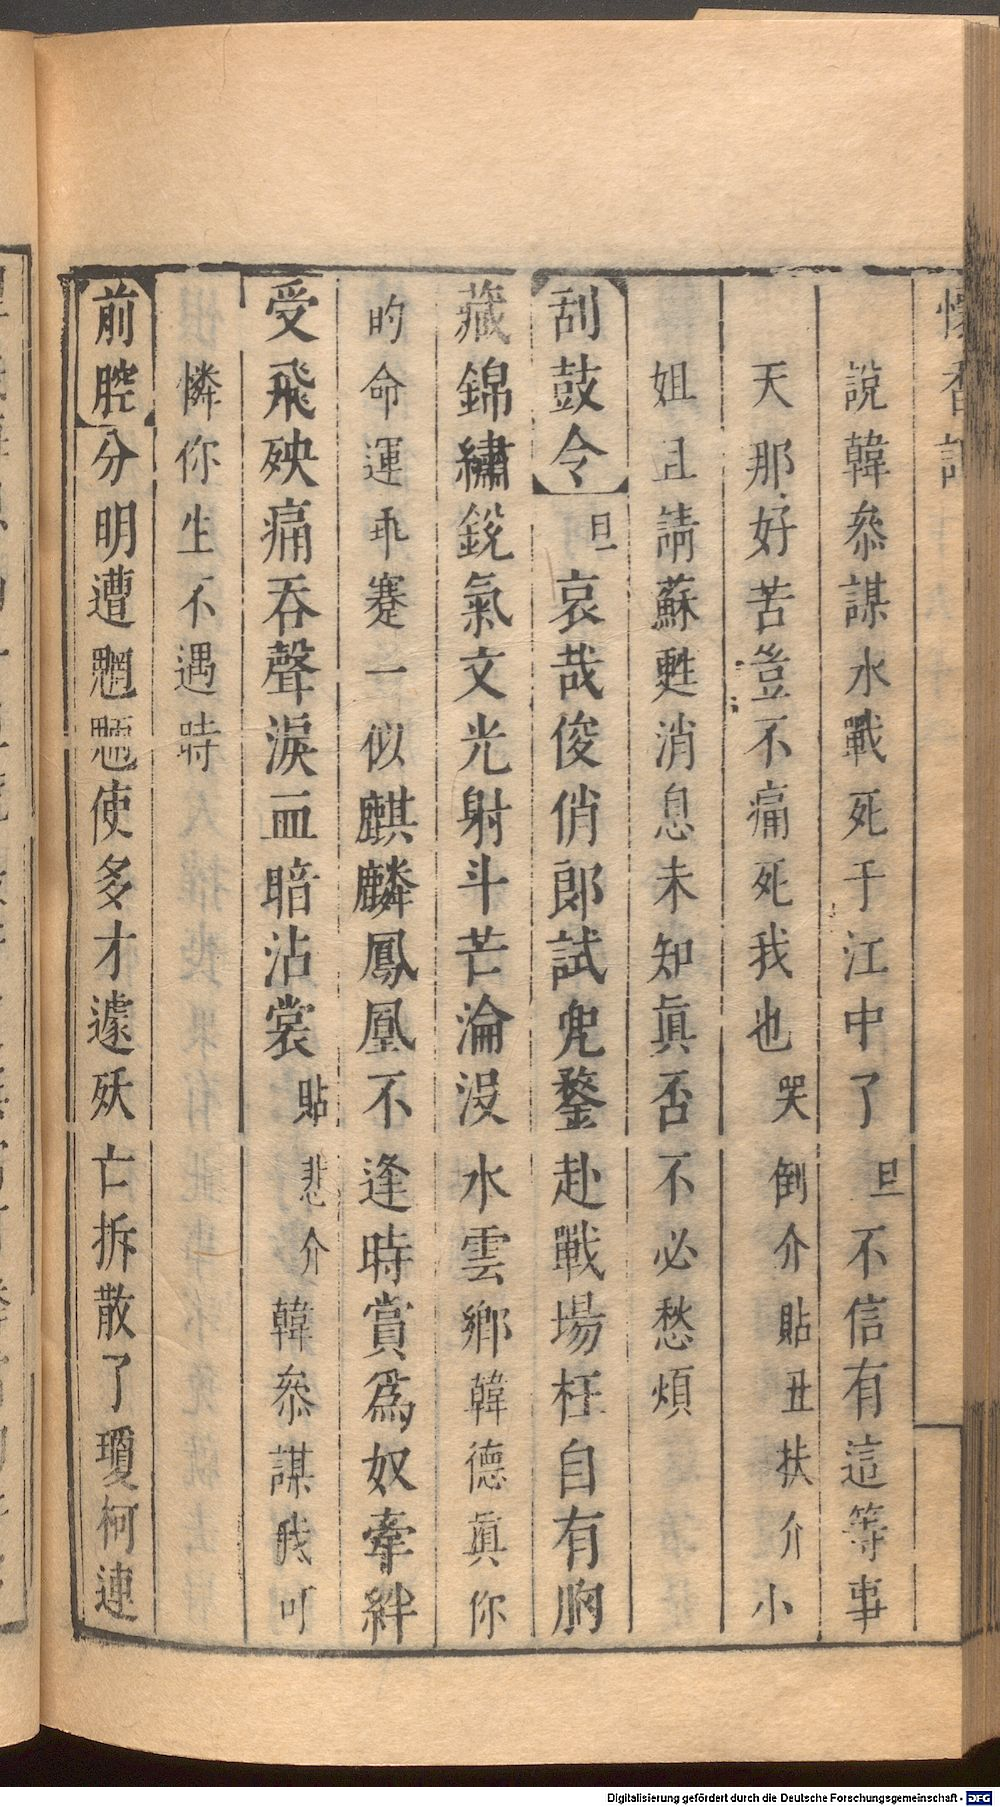 懷香記
說韓叅謀水戰死于江中了旦不信有這等事
天那好苦豈不痛死我也哭倒介貼丑扶介小
姐且請蘇甦消息未知眞否不必愁煩
刮鼓令旦哀哉俊俏郎試兜鍪赴戰場枉自有胸
藏錦繡銳氣文光射斗芒淪沒水雲鄉韓德眞你
的命運乖蹇一似麒麟鳳凰不逢時賞爲奴牽絆
受飛殃痛吞聲淚血暗沾裳貼悲介韓叅謀我可
憐你生不遇時
前腔分明遭魍魎使多才遽殀亡拆散了瓊柯連
Digitalisierung gefördert durch die Deutsche Forschungsgemeinschaft - DFG